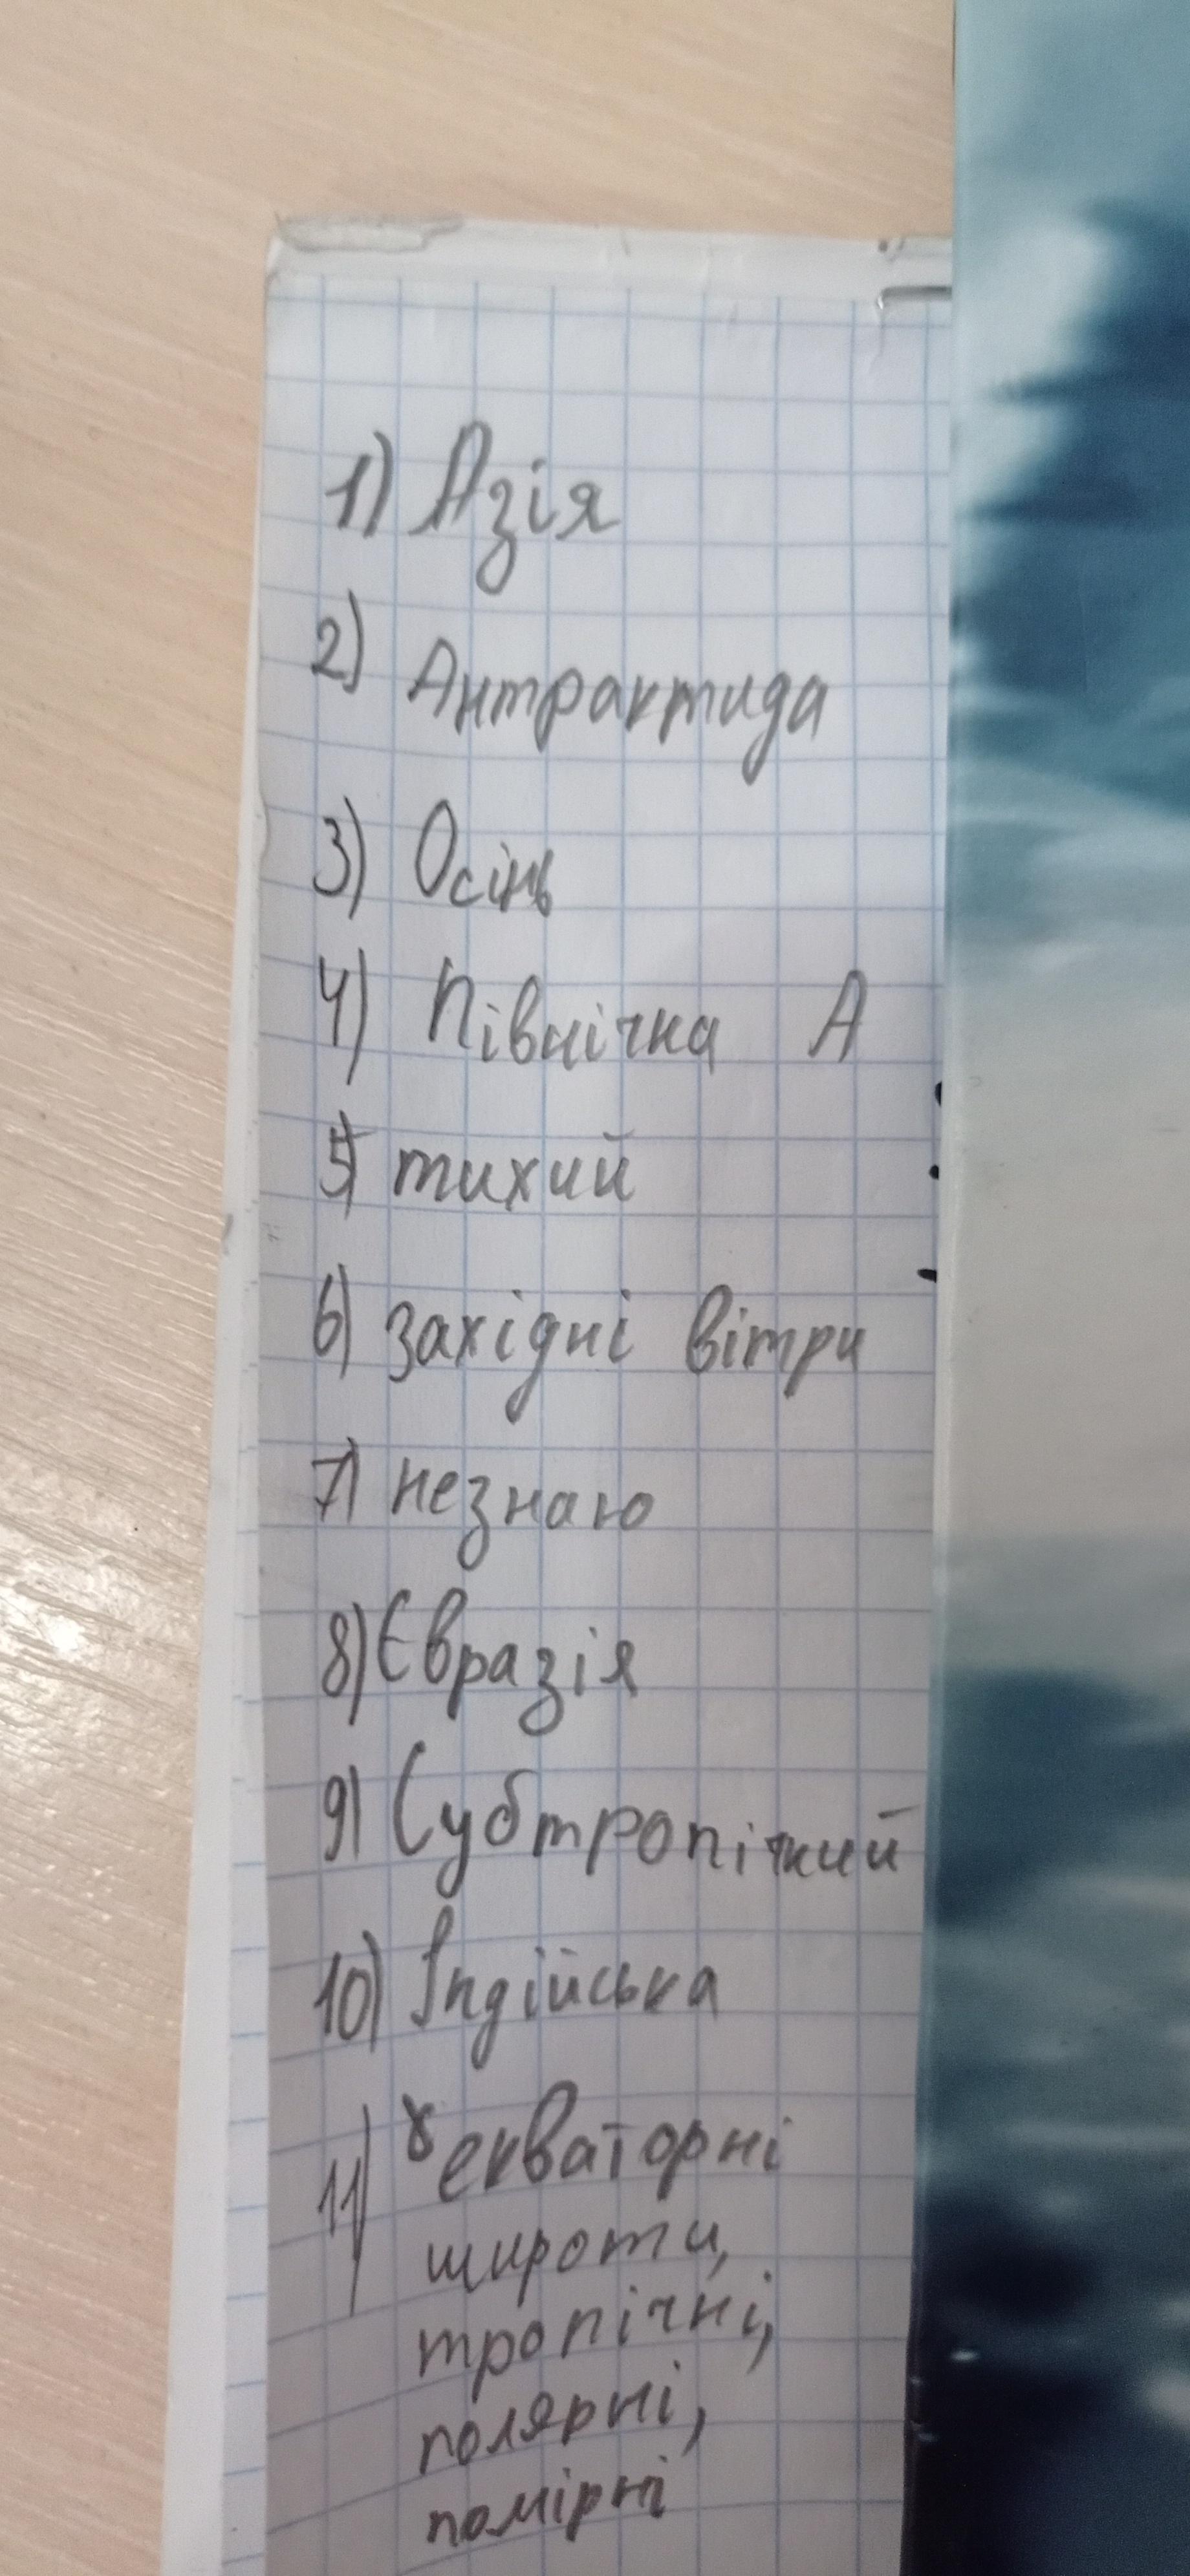 1) Азія
2) Антрактида
3) Осінь
4) Північна А
5) тихий
6) західні вітри
7) незнаю
8) Євразія
9) Субтропічний
10) Індійська
11) екваторні
широти,
тропічні,
полярні,
помірні